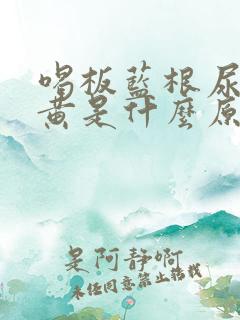 喝板藍根尿
黄是什麽原
是阿静啊
未经同意禁止搭载